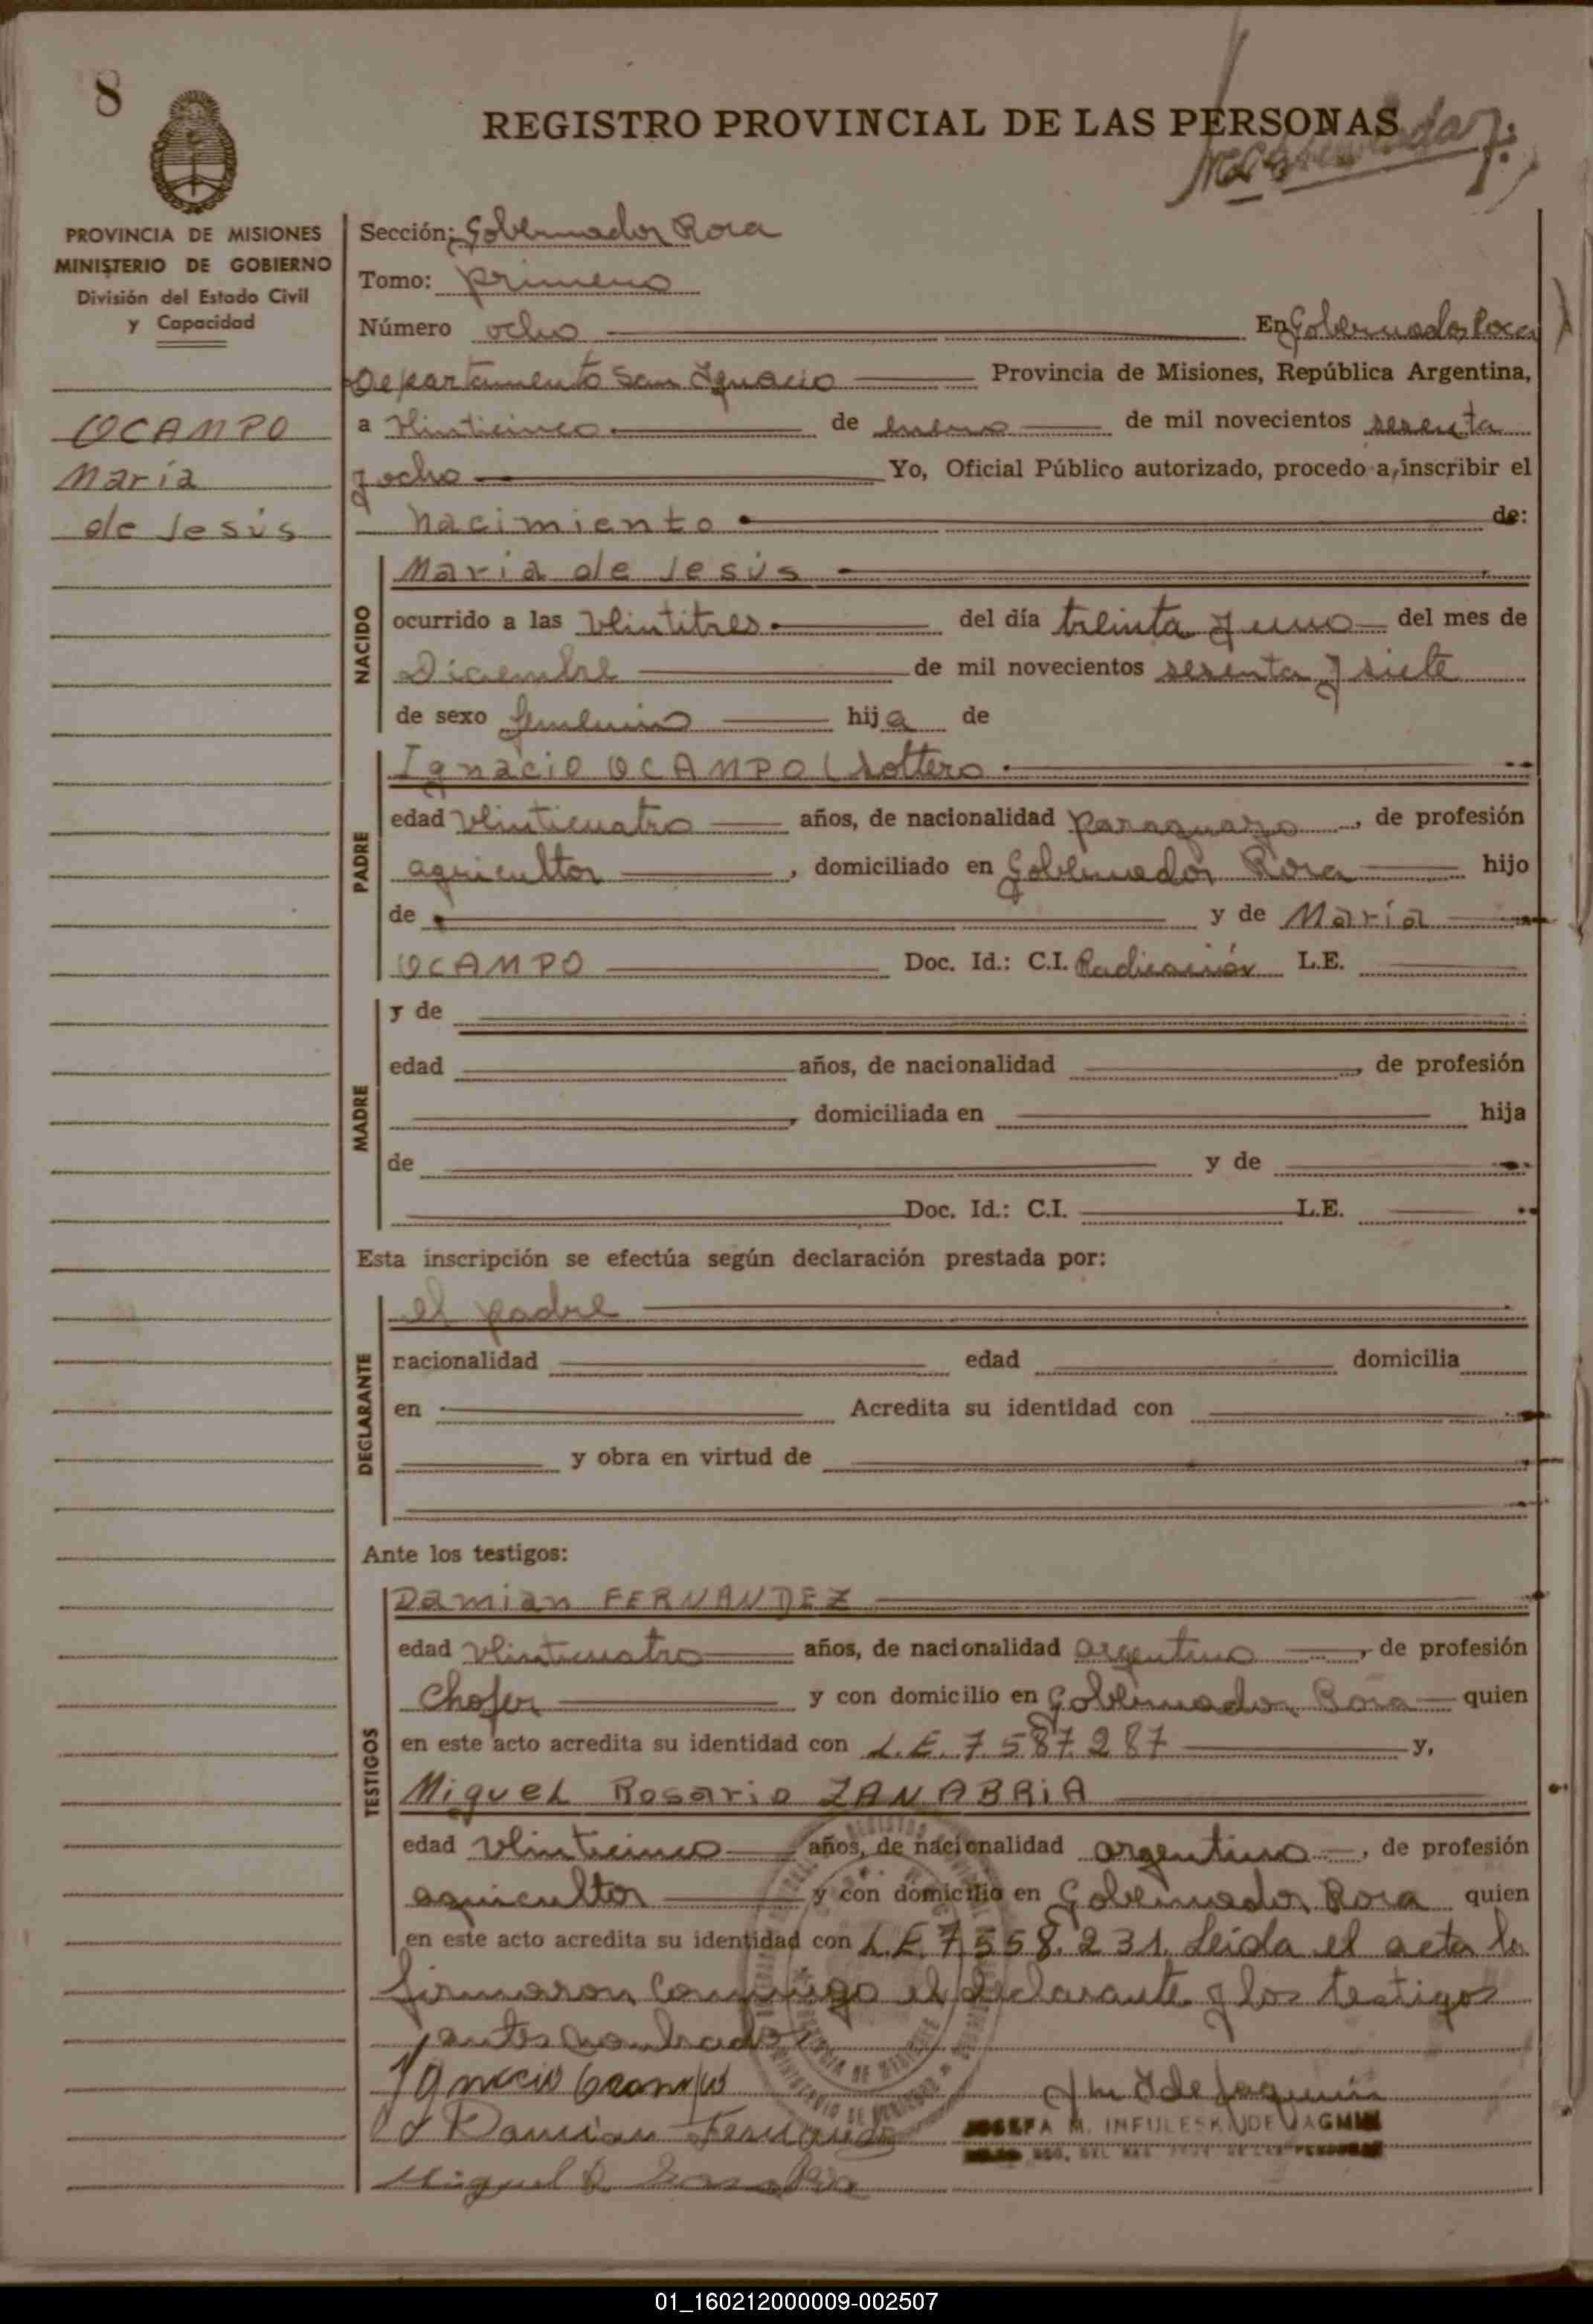 8
REGISTRO PROVINCIAL DE LAS PERSONAS
PROVINCIA DE MISIONES
MINISTERIO DE GOBIERNO
División del Estado Civil
y Capacidad
OCAMPO
María
de Jesús
Sección: Gobernador Roca
Tomo: primero
Número ocho En Gobernador Roca
Departamento San Ignacio Provincia de Misiones, República Argentina,
a veinticinco de enero de mil novecientos sesenta
y ocho Yo, Oficial Público autorizado, procedo a inscribir el
nacimiento de:
NACIDO
María de Jesús
ocurrido a las veintitres del día treinta y uno del mes de
Diciembre de mil novecientos sesenta y siete
de sexo femenino hija de
PADRE
Ignacio OCAMPO (soltero
edad veinticuatro años, de nacionalidad paraguayo, de profesión
agricultor, domiciliado en Gobernador Roca hijo
de y de María
OCAMPO Doc. Id.: C.I. Radicación L.E.
MADRE
y de
edad años, de nacionalidad , de profesión
, domiciliada en hija
de y de
Doc. Id.: C.I. L.E.
Esta inscripción se efectúa según declaración prestada por:
DECLARANTE
el padre
nacionalidad edad domicilia
en Acredita su identidad con
y obra en virtud de
Ante los testigos:
TESTIGOS
Damian FERNANDEZ
edad veinticuatro años, de nacionalidad argentino, de profesión
Chofer y con domicilio en Gobernador Roca quien
en este acto acredita su identidad con L.E. 7.587.287 y,
Miguel Rosario ZANABRIA
edad veinticinco años, de nacionalidad argentino, de profesión
agricultor y con domicilio en Gobernador Roca quien
en este acto acredita su identidad con L.E. 7.558.231. Leida el acta la
firmaron conmigo el declarante y los testigos
antes nombrados
Ignacio Ocampo
Damian Fernandez
JOSEFA M. INFULESKI DE JAGMIN
Miguel R.
01_160212000009-002507